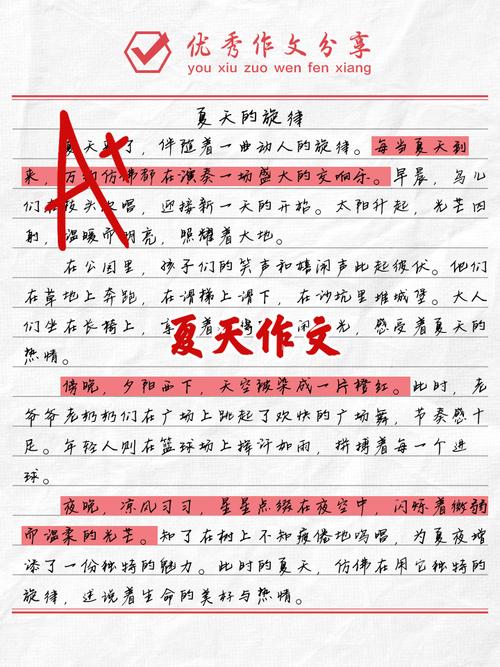 优秀作文分享
you xiu zuo wen fen xiang
夏天的旋律
A+
夏天到了，伴随着一曲动人的旋律。每当夏天到
来，万物仿佛都在演奏一场盛大的交响乐。早晨，鸟儿
们在枝头歌唱，迎接新一天的开始。太阳升起，光芒四
射，温暖而明亮，照耀着大地。
在公园里，孩子们的笑声和嬉闹声此起彼伏。他们
在草地上奔跑，在滑梯上滑下，在沙坑里堆城堡。大人
们坐在长椅上，享 着 闲 光，感受着夏天的
夏天作文
热情。
傍晚，夕阳西下，天空被染成一片橙红。此时，老
爷爷老奶奶们在广场上跳起了欢快的广场舞，节奏感十
足。年轻人则在篮球场上挥汗如雨，拼搏着每一个进
球。
夜晚，凉风习习，星星点缀在夜空中，闪烁着微弱
而温柔的光芒。知了在树上不知疲倦地鸣唱，为夏夜增
添了一份独特的魅力。此时的夏天，仿佛在用它独特的
旋律，述说着生命的美好与热情。